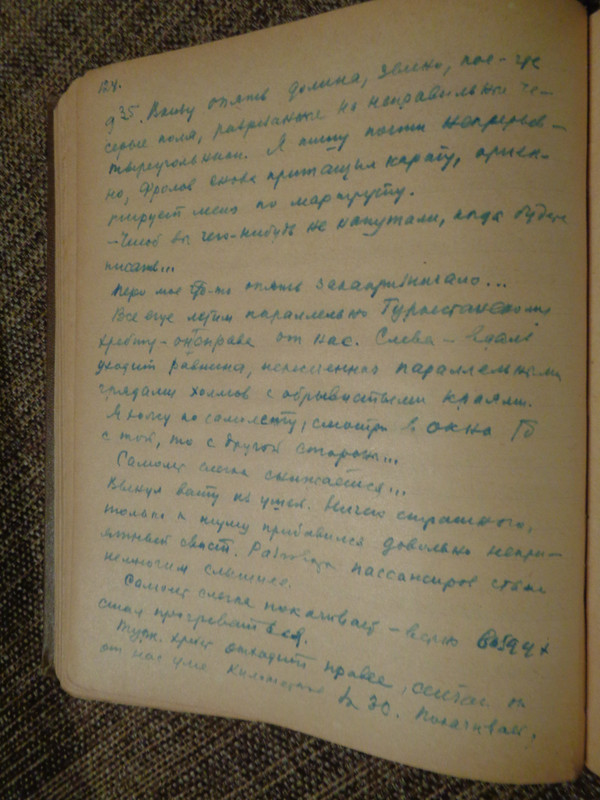 124.
9 35. Внизу опять долина, зелено, кое-где
серые поля, разрезанные на неправильные че-
тыреугольники. Я пишу почти непрерыв-
но, Фролов снова притащил карту, ориен-
тирует меня по маршруту.
-Чтоб вы чего-нибудь не напутали, когда будете
писать...
Перо мое что-то опять закапризничало...
Все еще летим параллельно Туркестанскому
хребту - он справа от нас. Слева - вдаль
уходит равнина, исчисленная параллельными
грядами холмов с обрывистыми краями.
Я хожу по самолету, смотрю в окна то
с той, то с другой стороны...
Самолет слегка снижается...
Вынул вату из ушей. Ничего страшного,
только к шуму прибавился довольно непри-
ятный свист. Разговоры пассажиров стали
немногим слышнее.
Самолет слегка покачивает - видно воздух
стал прогреваться.
Турк. хребет отходит правее, сейчас он
от нас уже километрах в 30. Покачивает,